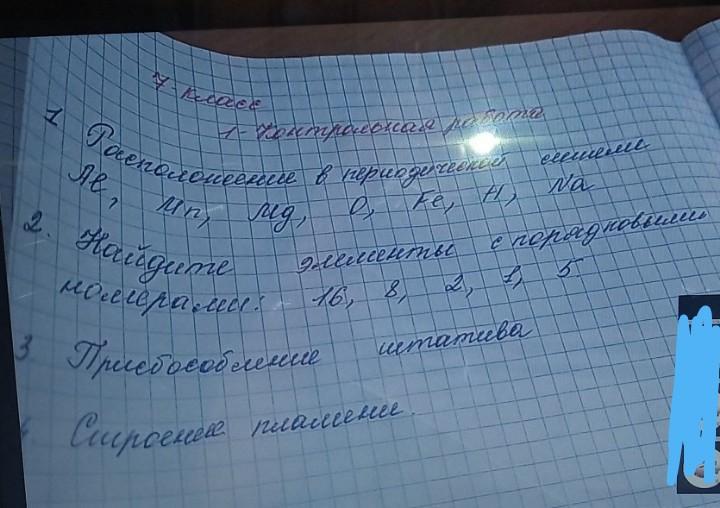 7 класс
1-Контрольная работа
1 Расположение в периодической системе
Al, Mn, Mg, O, Fe, H, Na
2. Найдите элементы с порядковыми
номерами: 16, 8, 2, 1, 5
3 Приспособление штатива
4 Строение пламени.